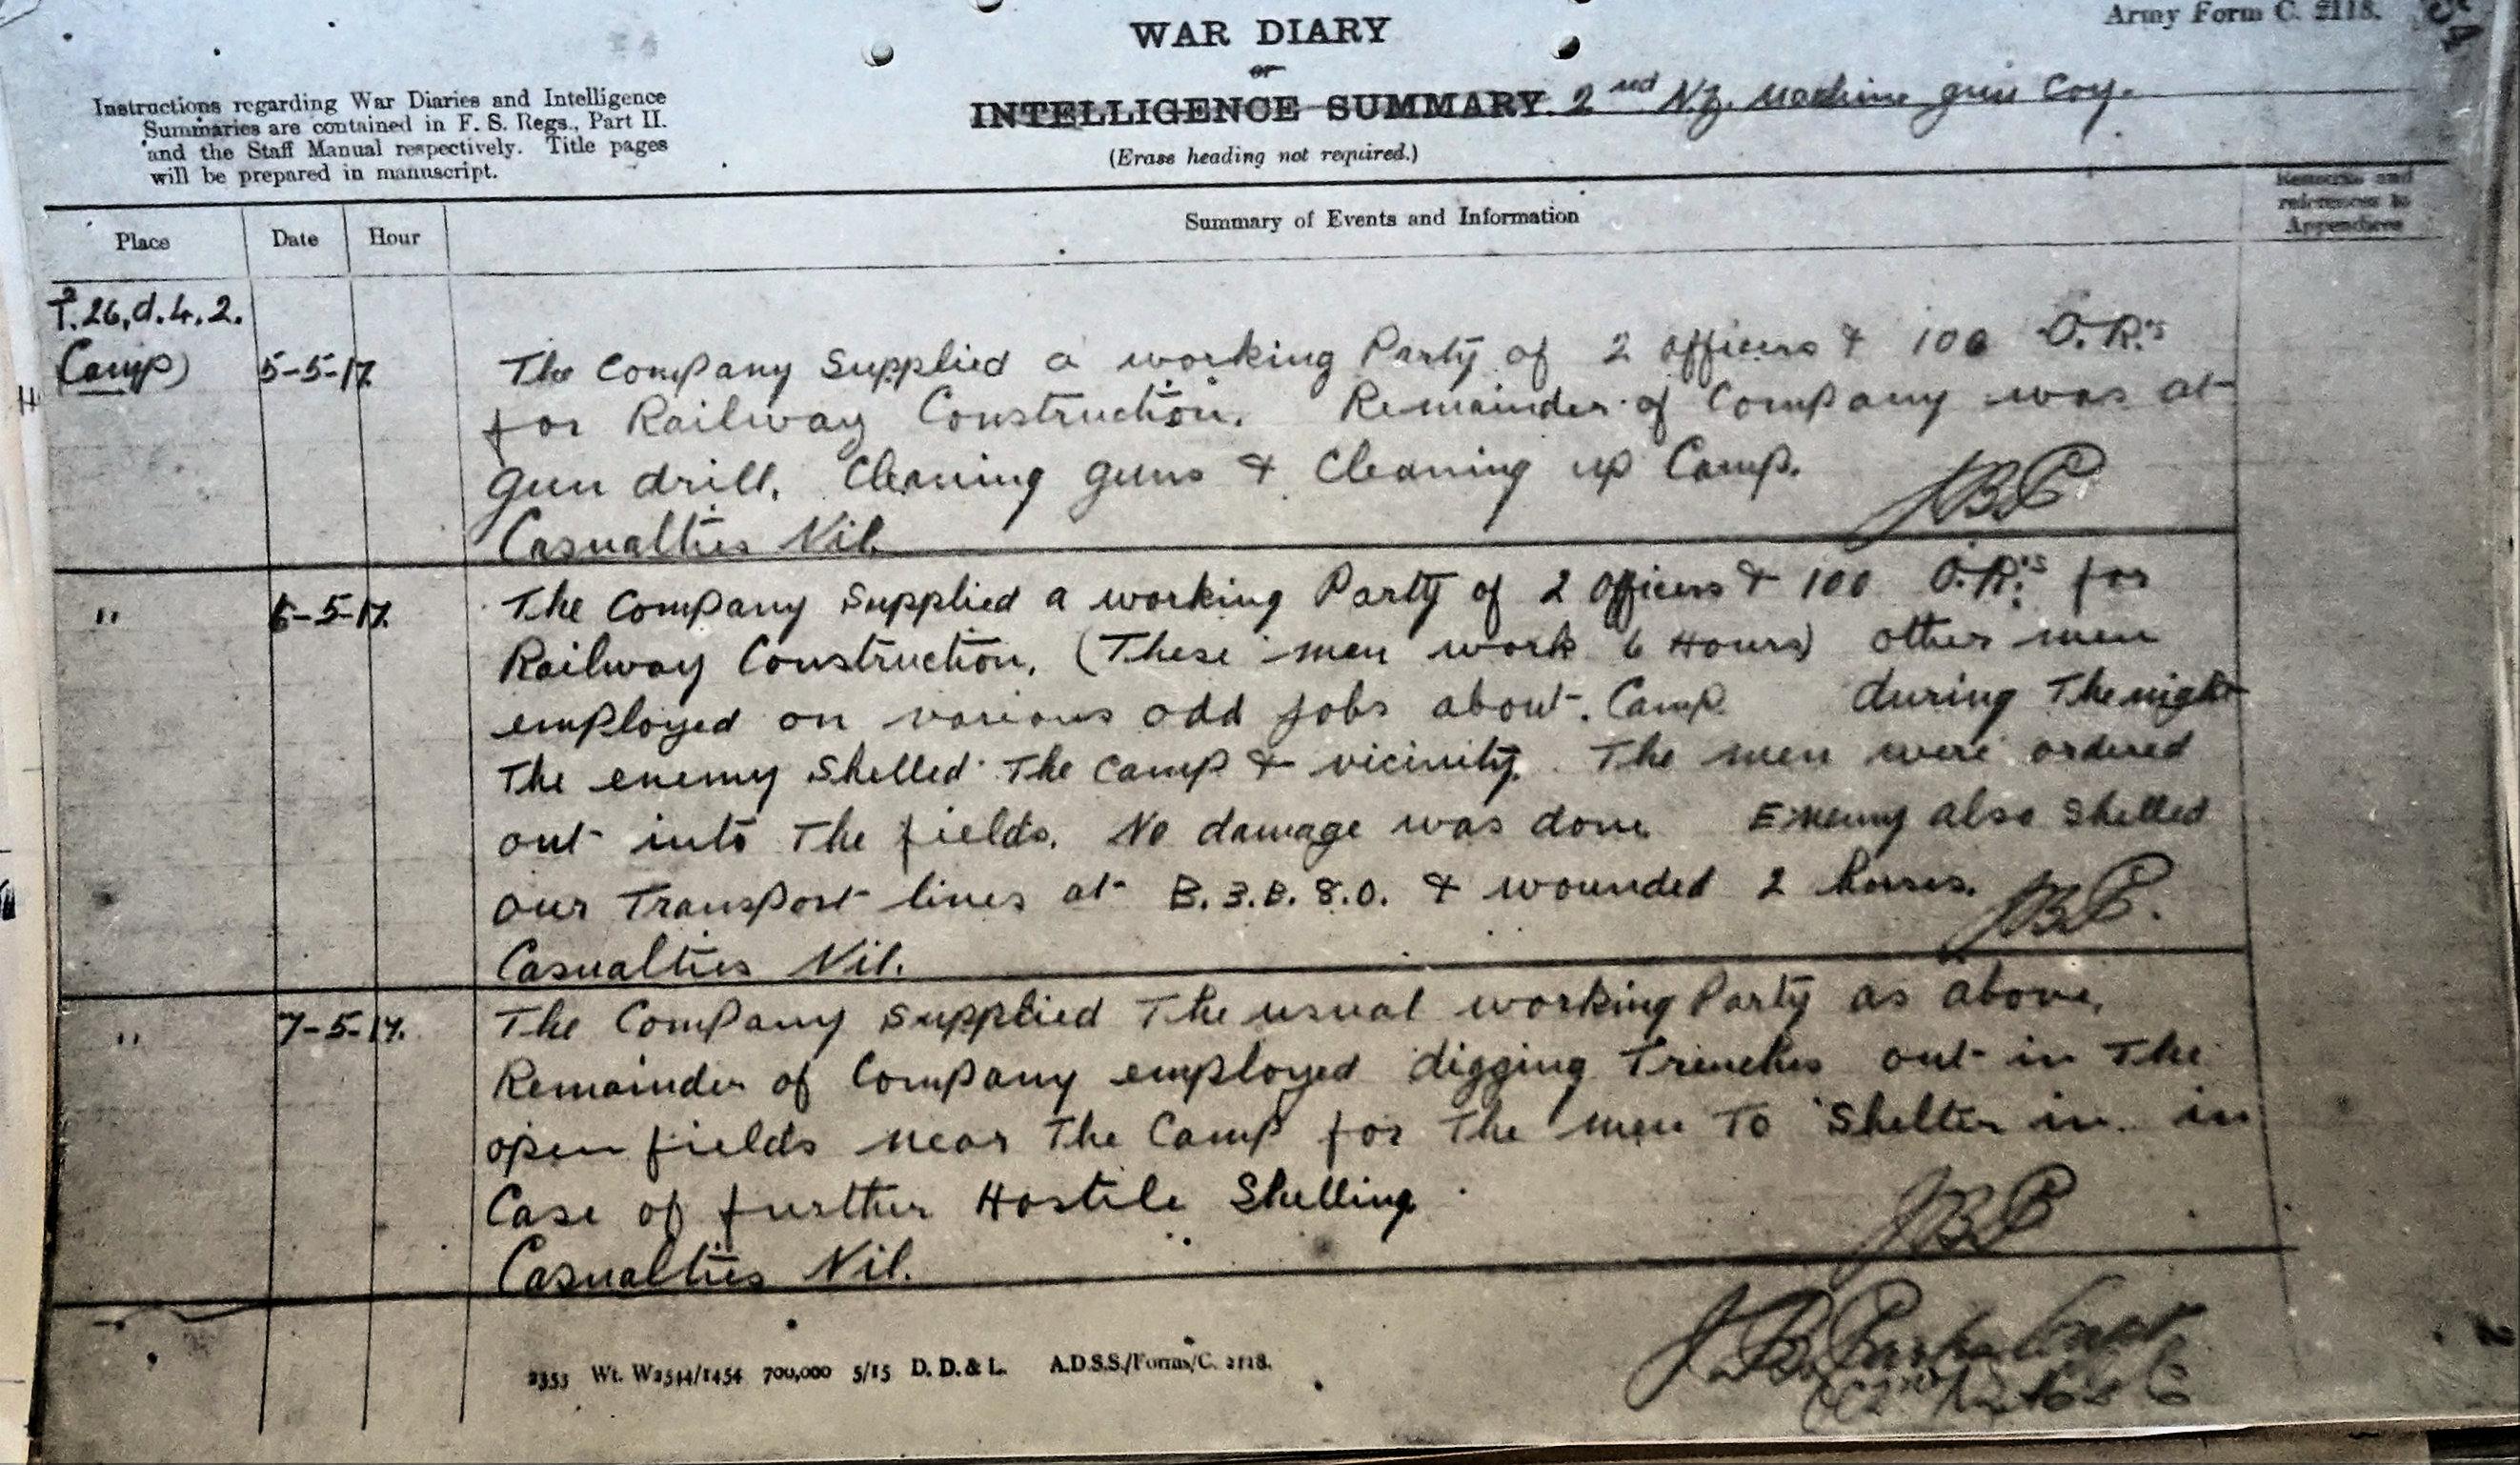 Army Form C. 2118.
WAR DIARY
or
INTELLIGENCE SUMMARY. 2nd N.Z. Machine gun Coy.
(Erase heading not required.)
Instructions regarding War Diaries and Intelligence
Summaries are contained in F. S. Regs., Part II.
and the Staff Manual respectively. Title pages
will be prepared in manuscript.
Place Date Hour Summary of Events and Information Remarks and
references to
Appendices
T.26,d.4.2.
Camp) 5-5-17. The Company Supplied a working Party of 2 officers & 100 O.R.'s
for Railway Construction. Remainder of Company was at
gun drill, Cleaning guns & Cleaning up Camp.
JBP
Casualties Nil.
" 6-5-17. The Company Supplied a working Party of 2 Officers & 100 O.R.'s for
Railway Construction, (These men work 6 Hours) other men
employed on various odd jobs about Camp. during The night
The enemy Shelled The Camp & vicinity. The men were ordered
out into The fields. No damage was done Enemy also Shelled
our Transport lines at B.3.B.8.0. & wounded 2 horses.
JBP.
Casualties Nil.
" 7-5-17. The Company Supplied The usual working Party as above.
Remainder of Company employed digging Trenches out in The
open fields near The Camp for The men To Shelter in. in
Case of further Hostile Shelling.
JBP
Casualties Nil.
2353 Wt. W2544/1454 700,000 5/15 D. D. & L. A.D.S.S./Forms/C. 2118.
J.B. Parks